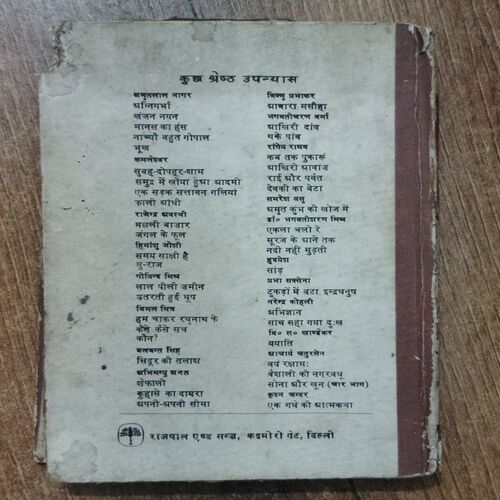 कुछ श्रेष्ठ उपन्यास
अमृतलाल नागर
अग्निगर्भा
खंजन नयन
मानस का हंस
नाच्यौ बहुत गोपाल
भूख
कमलेश्वर
सुबह-दोपहर-शाम
समुद्र में खोया हुआ आदमी
एक सड़क सत्तावन गलियां
काली आंधी
राजेन्द्र अवस्थी
मछली बाजार
जंगल के फूल
हिमांशु जोशी
समय साक्षी है
सु-राज
गोविन्द मिश्र
लाल पीली जमीन
उतरती हुई धूप
बिमल मित्र
हम चाकर रघुनाथ के
कैसे कैसे सच
कौन?
बलवन्त सिंह
सिंदूर की तलाश
अभिमन्यु अनत
शेफाली
कुहासे का दायरा
अपनी-अपनी सीमा
विष्णु प्रभाकर
आवारा मसीहा
भगवतीचरण वर्मा
आखिरी दांव
थके पांव
रांगेय राघव
कब तक पुकारूं
आखिरी आवाज
राई और पर्वत
देवकी का बेटा
समरेश बसु
अमृत कुंभ की खोज में
डॉ० भगवतीशरण मिश्र
एकला चलो रे
सूरज के आने तक
नदी नहीं मुड़ती
हृदयेश
सांड़
प्रभा सक्सेना
टुकड़ों में बंटा इन्द्रधनुष
नरेन्द्र कोहली
अभिज्ञान
साथ सहा गया दुःख
वि० स० खाण्डेकर
ययाति
आचार्य चतुरसेन
वयं रक्षामः
वैशाली की नगरवधू
सोना और खून (चार भाग)
कृश्न चन्दर
एक गधे की आत्मकथा
राजपाल एण्ड सन्ज़, कश्मीरी गेट, दिल्ली